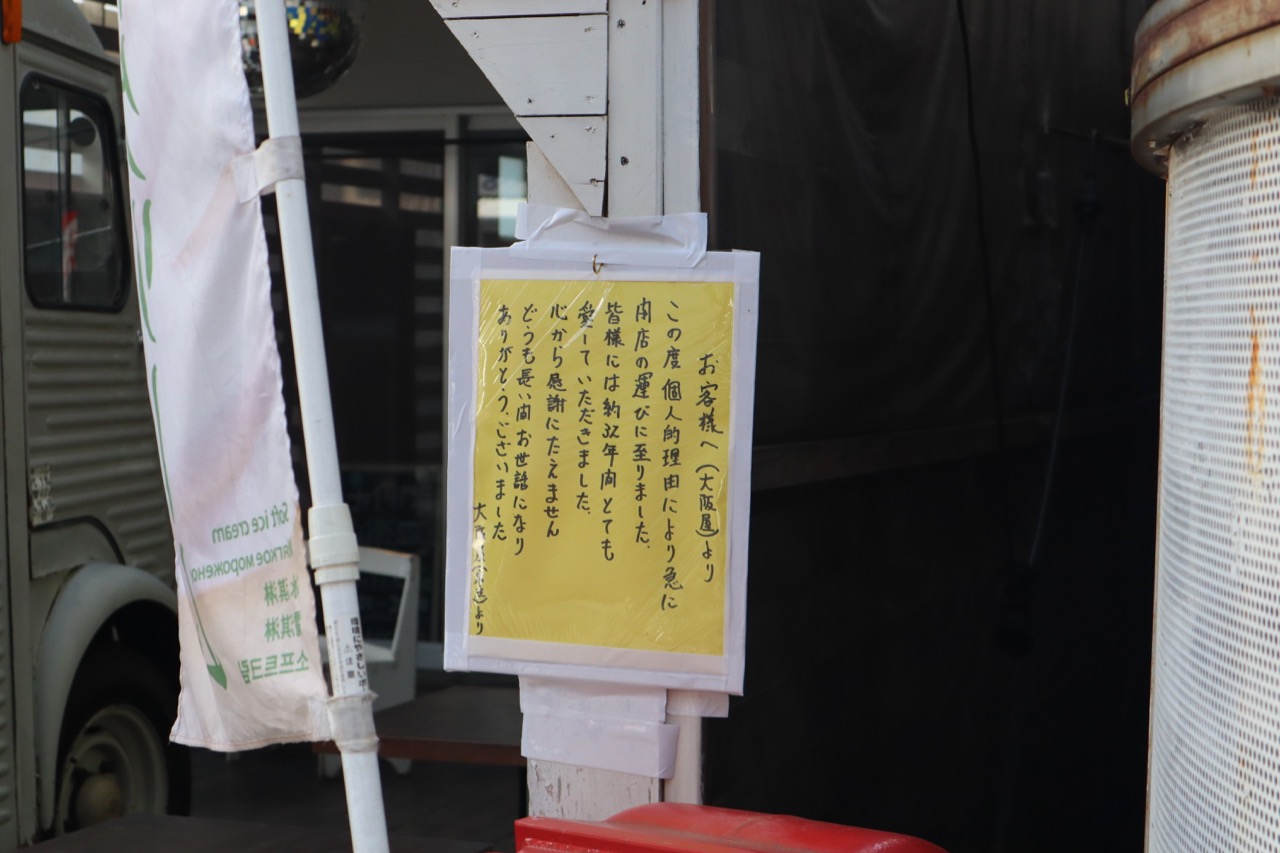 お客様へ(大阪屋)より
この度個人的理由により急に
閉店の運びに至りました.
皆様には約32年間とても
愛していただきました.
心から感謝にたえません
どうも長い間お世話になり
ありがとう.ございました
大阪より
Soft ice cream
Мягкое морожено
冰淇淋
雪淇淋
소프트크림
環境にやさしいポ
注意